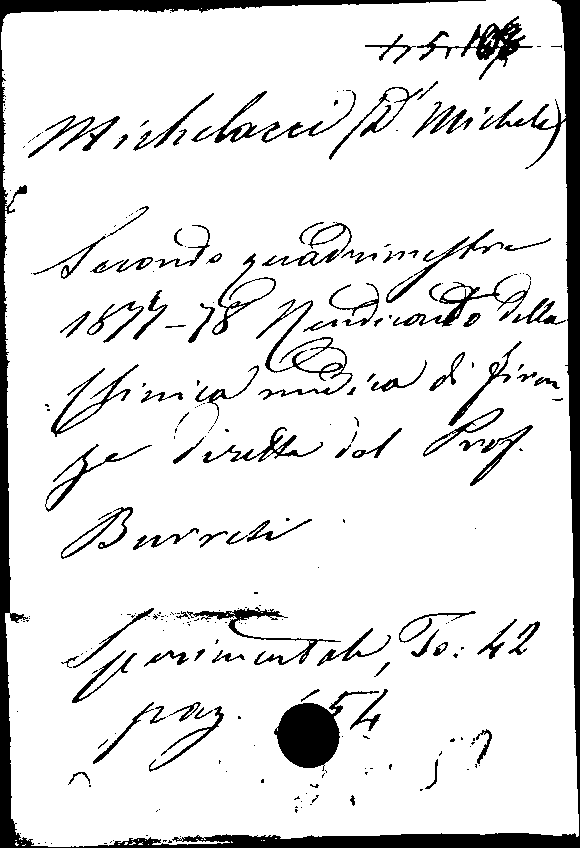 Michelacci (Dr Michele)
Secondo quadrimestre
1877-78 Rendiconto della
Clinica medica di Firen-
ze diretta dal Prof.
Burresi
Sperimentale, To: 42
pag. 54